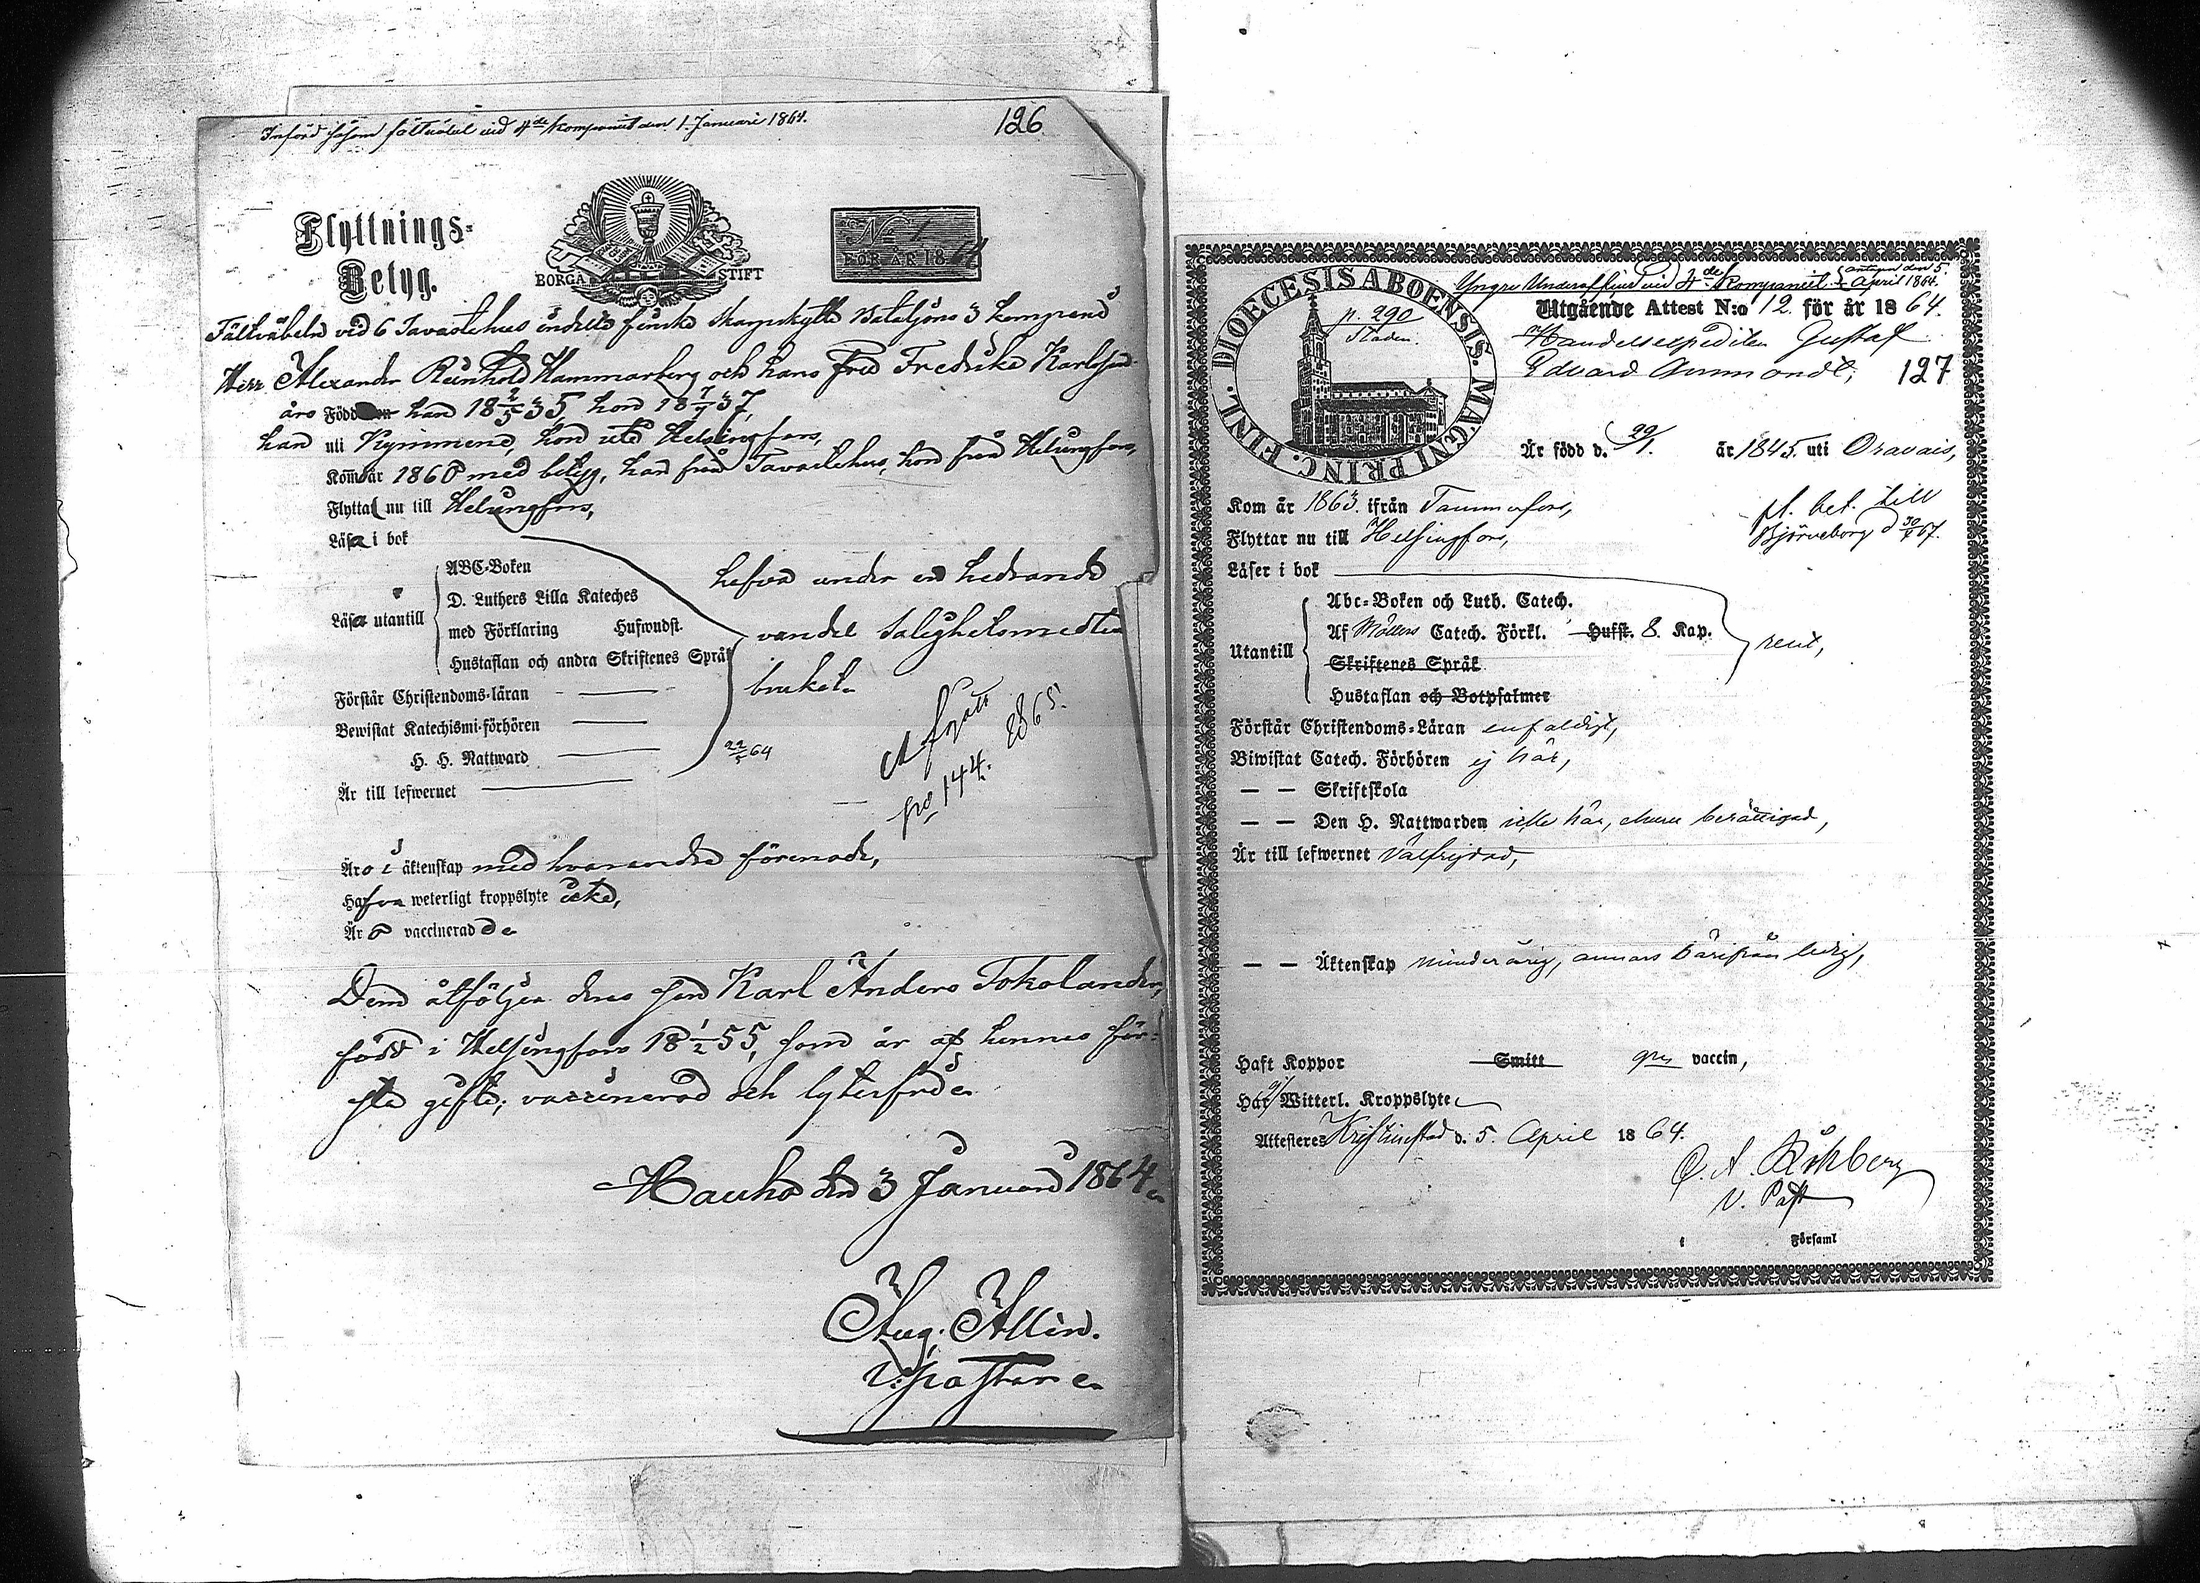 Införd såsom fältväbel vid 4de Kompaniet den 1. Januari 1864.
126
Flyttnings=
Betyg.
BORGÅ STIFT
No 1
FÖR ÅR 1864
Fältväbeln vid 6 Tavastehus indelta finska Skarpskytte Bataljons 3 kompani
Herr Alexander Reinhold Hammarberg och hans fru Fredrika Karlsson
äro Född han 18 2/5 35, hon 18 7/9 37,
han uti Kymmene, hon uti Helsingfors,
Kom år 1860 med betyg, han från Tavastehus, hon från Helsingfors,
Flytta nu till Helsingfors,
Läsa i bok
Läsa utantill
ABC-Boken
D. Luthers Lilla Kateches
med Förklaring Hufwudst.
Hustaflan och andra Skriftenes Språk
Förstår Christendoms-läran
Bewistat Katechismi-förhören
H. H. Nattward
Är till lefwernet
hafva under en hedrande
vandel Salighetsmedlen
brukat.
22/5 64
Afgått 1865.
No 144.
Äro i äktenskap med hvarandra förenade,
Hafva weterligt kroppslyte icke,
Äro vaccinerade
Dem åtföljer dess son Karl Anders Tokolander,
född i Helsingfors 18 1/2 55, som är af hennes för-
sta gifte; vaccinerad och lytesfri.
Hauho den 3 Januari 1864.
Aug. Allin.
V. pastor.
DIOECESIS ABOENSIS. MAGNI PRINC. FINL.
p. 290
Staden.
Yngre Underofficer vid 4de Kompaniet antagen den 5. April 1864.
Utgående Attest N:o 12. för år 1864.
Handelsexpediten Gustaf
Edvard Ammondt;
127
Är född d. 29/1. år 1845. uti Oravais,
Kom år 1863. ifrån Tammerfors,
Flyttar nu till Helsingfors,
fl. bet. till
Björneborg d 30/9 67.
Läser i bok
Utantill
Abc=Boken och Luth. Catech.
Af Möllers Catech. Förkl. Hufst. 8. Kap.
Skriftenes Språk
Hustaflan och Botpsalmer
rent,
Förstår Christendoms=Läran enfaldigt,
Biwistat Catech. Förhören ej här,
— — Skriftskola
— — Den H. Nattwarden icke här, ehuru berättigad,
Är till lefwernet välfrejdad,
— — Äktenskap minderårig, annars härifrån ledig,
Haft Koppor Smitt gm vaccin,
Har ej Witterl. Kroppslyte
Attesteres Kristinestad d. 5. April 1864.
V. Past
Församl